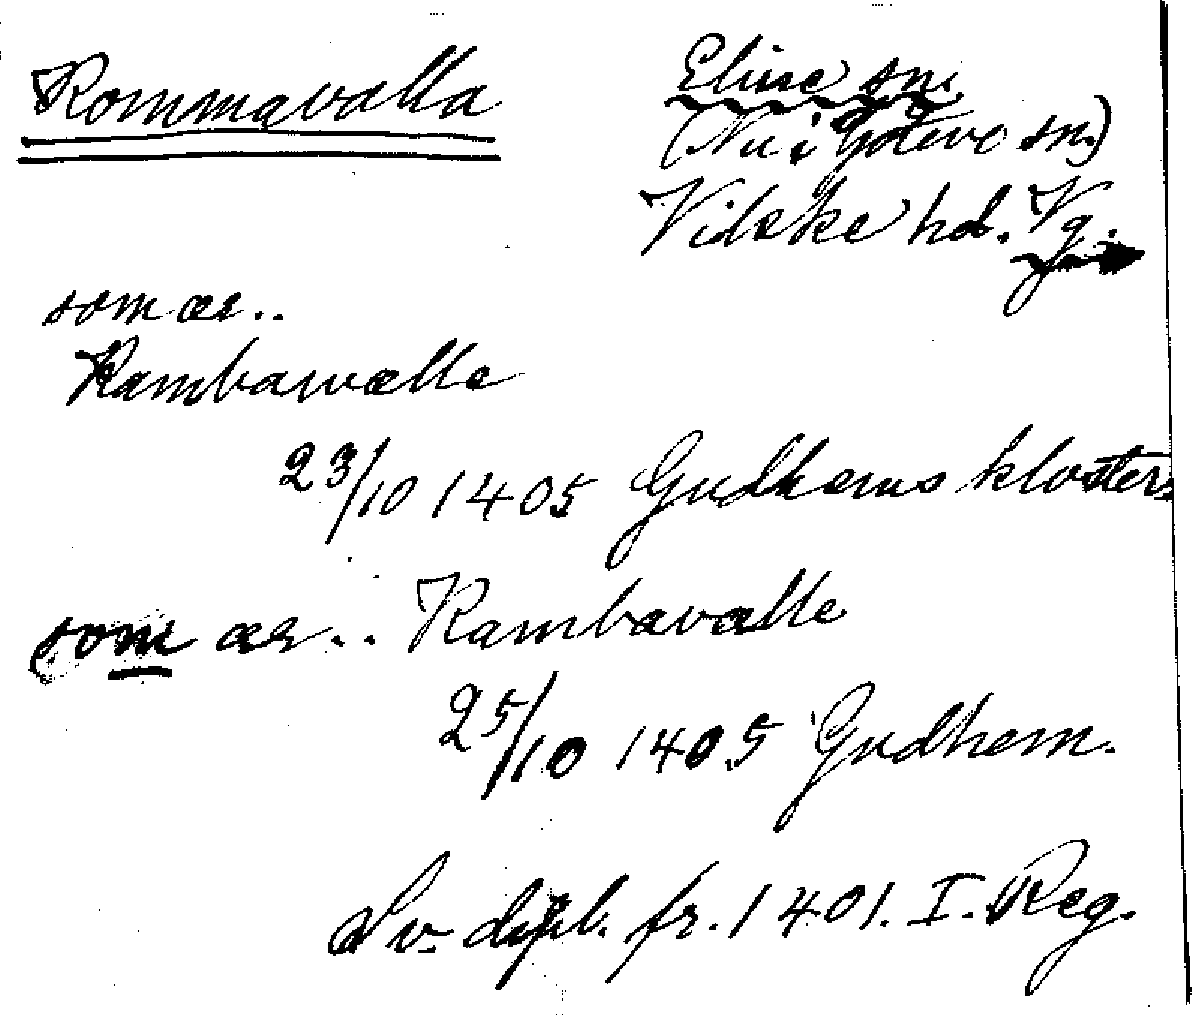 Rommavalla
Eline sn.
(Nu i Götene sn.)
Vilske hd. Vg.
som ær..
Rambawælle
23/10 1405 Gudhems klosters
som ær.. Rambavalle
25/10 1405 Gudhem.
Sv. dipl. fr. 1401. I. Reg.